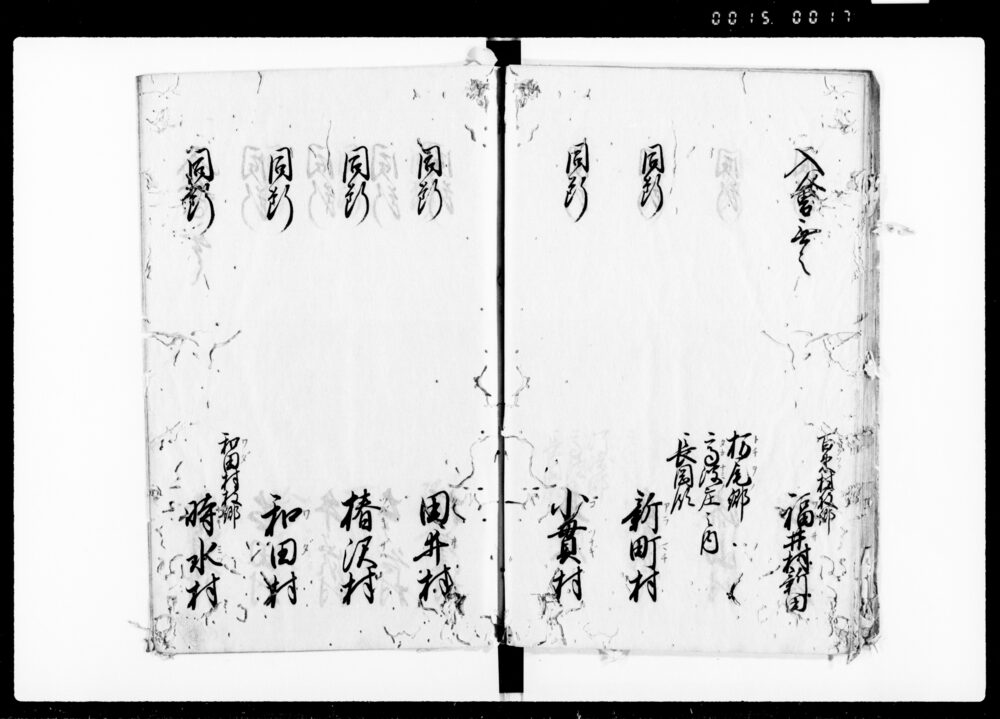 0015. 0017
百束村枝郷
福井村新田
栃尾郷
高波庄之内
長岡領
同断
新町村
同断
小貫村
同断
田井村
同断
椿沢村
同断
和田村
和田村枝郷
同断
時水村